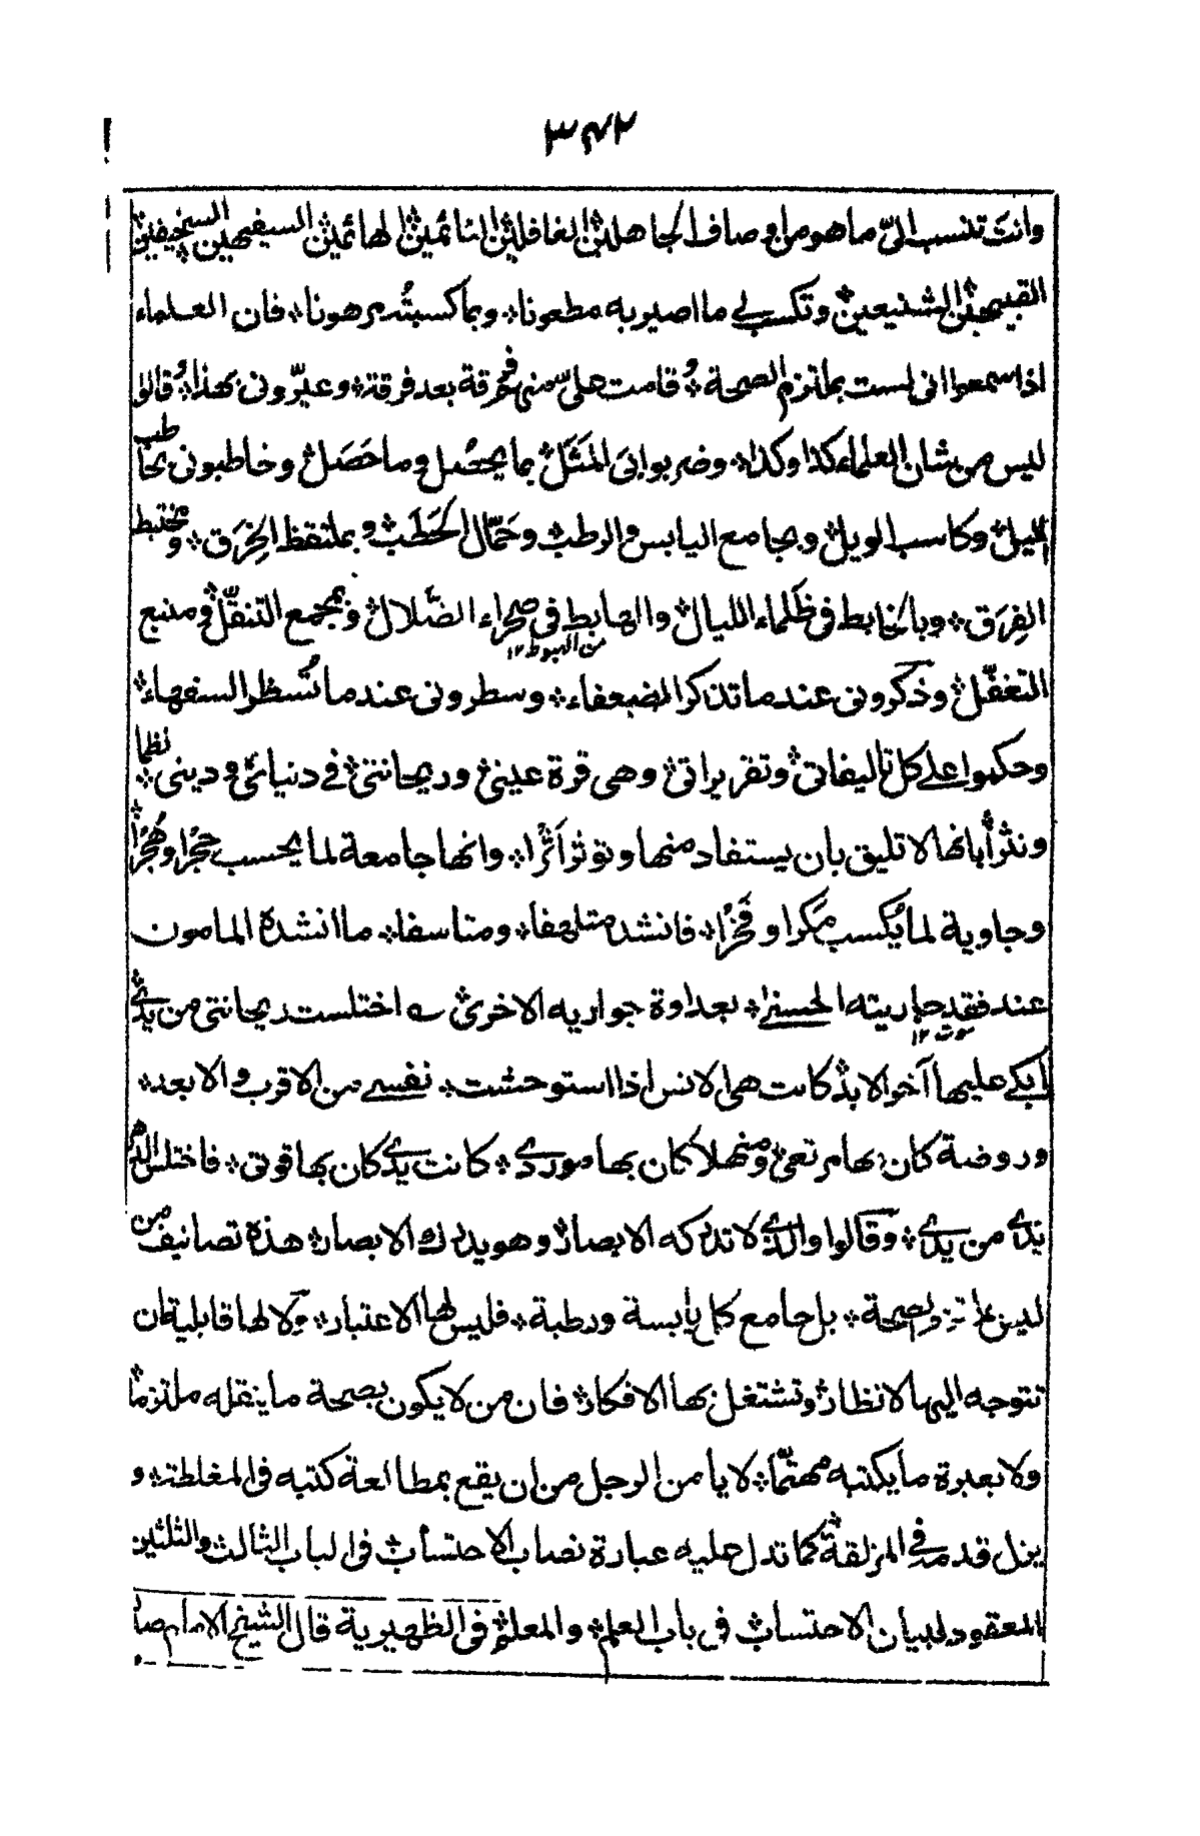 ٣٤٢
وانت تنسب الىّ ما هو من اوصاف الجاهلين الغافلين النائمين الهائمين السفيهين السخيفين
القبيحين الشنيعين وتكسب لى ما اصير به مطعونا وبما كسبته مرهونا فان العلماء
اذا سمعوا انى لست بملتزم الصحة قامت على منهم فرقة بعد فرقة وعيّرونى بهذا وقالوا
ليس من شان العلماء كذا وكذا وضربوا بىَ المَثَل بما يحصل وما حَصَل وخاطبونى بحاطب
الليل وكاسب الويل وبجامع اليابس والرطب وحَمّال الحَطَب وبملتقظ الخِرَق ومختبط
الفِرَق وبالخابط فى ظَلماء الليال والهابط فى صحراء الضّلال وبمجمع التنقّل ومنبع
من الهبوط ١٢
التغفّل وذكرونى عند ما تذكر الضعفاء وسطرونى عند ما تُسَطر السفهاء
وحكموا على كل تاليفاتى وتقريراتى وهى قرة عينى وريحانتى فى دنيائى ودينى نظما
ونثرا بانها لا تليق بان يستفاد منها وتوثر اَثَرا وانها جامعة لما يحسب حجرا وهُجرا
وحاوية لما يُكسب مَكرا وفَخرا فانشد متلهفا ومتاسفا ما انشده المامون
عند فقد جاريته الحسنى بعداوة جواريه الاخرى ۔ اختلست ريحانتى من يدى
موت ١٢
ابكى عليها آخر الابد كانت هى الانس اذا استوحشت نفسى من الاقرب والابعد
وروضة كان بها مرتعى ومنهلا كان بها موردى كانت يدى كان بها قوتى فاختلس الدهر
يدى من يدى وقالوا والذى لا تدركه الابصار وهو يدرك الابصار هذه تصانيف من
ليس بملتزم الصحة بل جامع كل يابسة ورطبة فليس لها الاعتبار ولا لها قابلية ان
تتوجه اليها الانظار وتشتغل بها الافكار فان من لا يكون بصحة ما ينقله ملتزما
ولا بعبرة ما يكتبه مهتمّا لا يامن الرجل من ان يقع بمطالعة كتبه فى المغلطة و
يزل قدمه فى المزلقة كما تدل عليه عبارة نصاب الاحتساب فى الباب الثالث والثلثين
المعقود لبيان الاحتساب فى باب العلم والمعلم فى الظهيرية قال الشيخ الامام